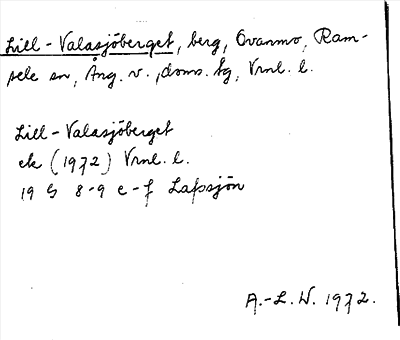 Lill-Valasjöberget, berg, Ovanmo, Ram-
sele sn, Ång. v., doms. tg, Vrnl. l.
Lill-Valasjöberget
ek (1972) Vrnl. l.
19 G 8-9 e-f Lafssjön
A.-L. W. 1972.